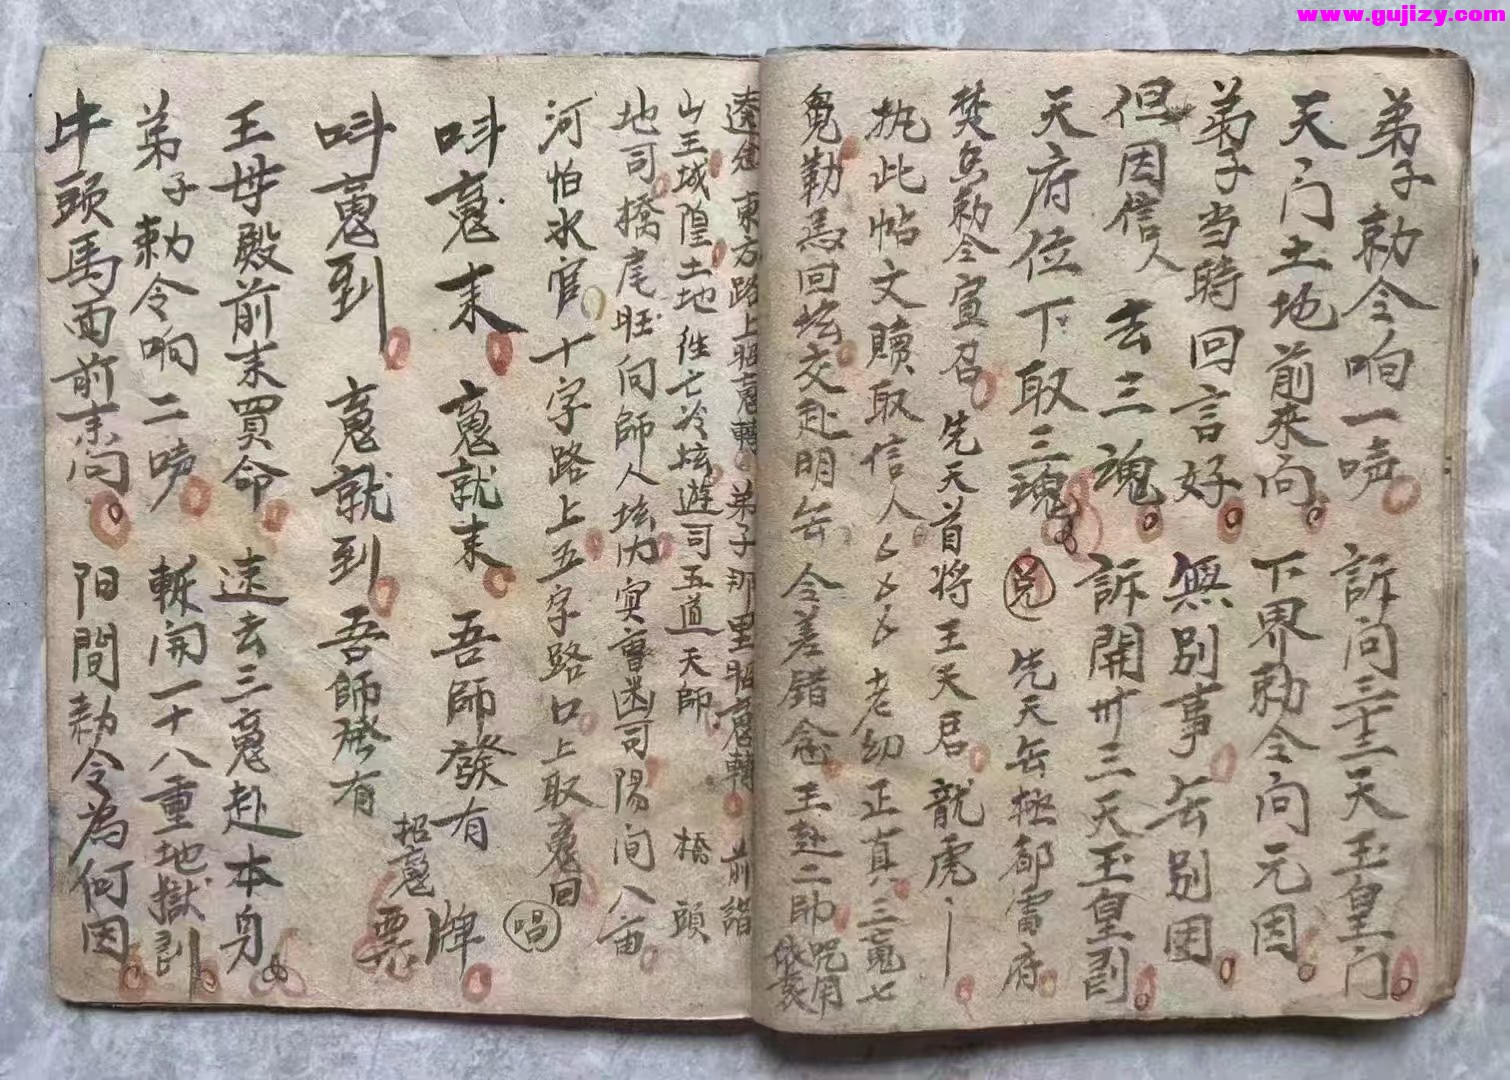 www.gujizy.com
弟子勅令响一声 訴问三十三天玉皇门
天门土地前来问 下界勅令问元因
弟子当時回言好 無别事无别因
但因信人去三魂 訴開卅三天玉皇
天府位下取三魂 兑 先天无極都雷府
焚勅令宣召 先天首将王天君 龍虎
執此帖文贖取信人 老幼正真三魂七
勒馬回坛交赴明 令差錯念 王赵二帥咒用
東方路上招魂轉 弟子那里招魂轉 前詣
山王城隍土地 遊司五道天師 橋頭
地司橋尾旺 向師人坛内 曹 司陽间入
河怕水官 十字路上五字路口上取魂回 唱
叫魂来 魂就来 吾師發有牌
招魂票
叫魂到 魂就到 吾師發有
王母殿前来買命 速去三魂赴本身
弟子勅令响二声 斬開一十八重地獄
牛頭馬面前来问 阳間勅令為何因